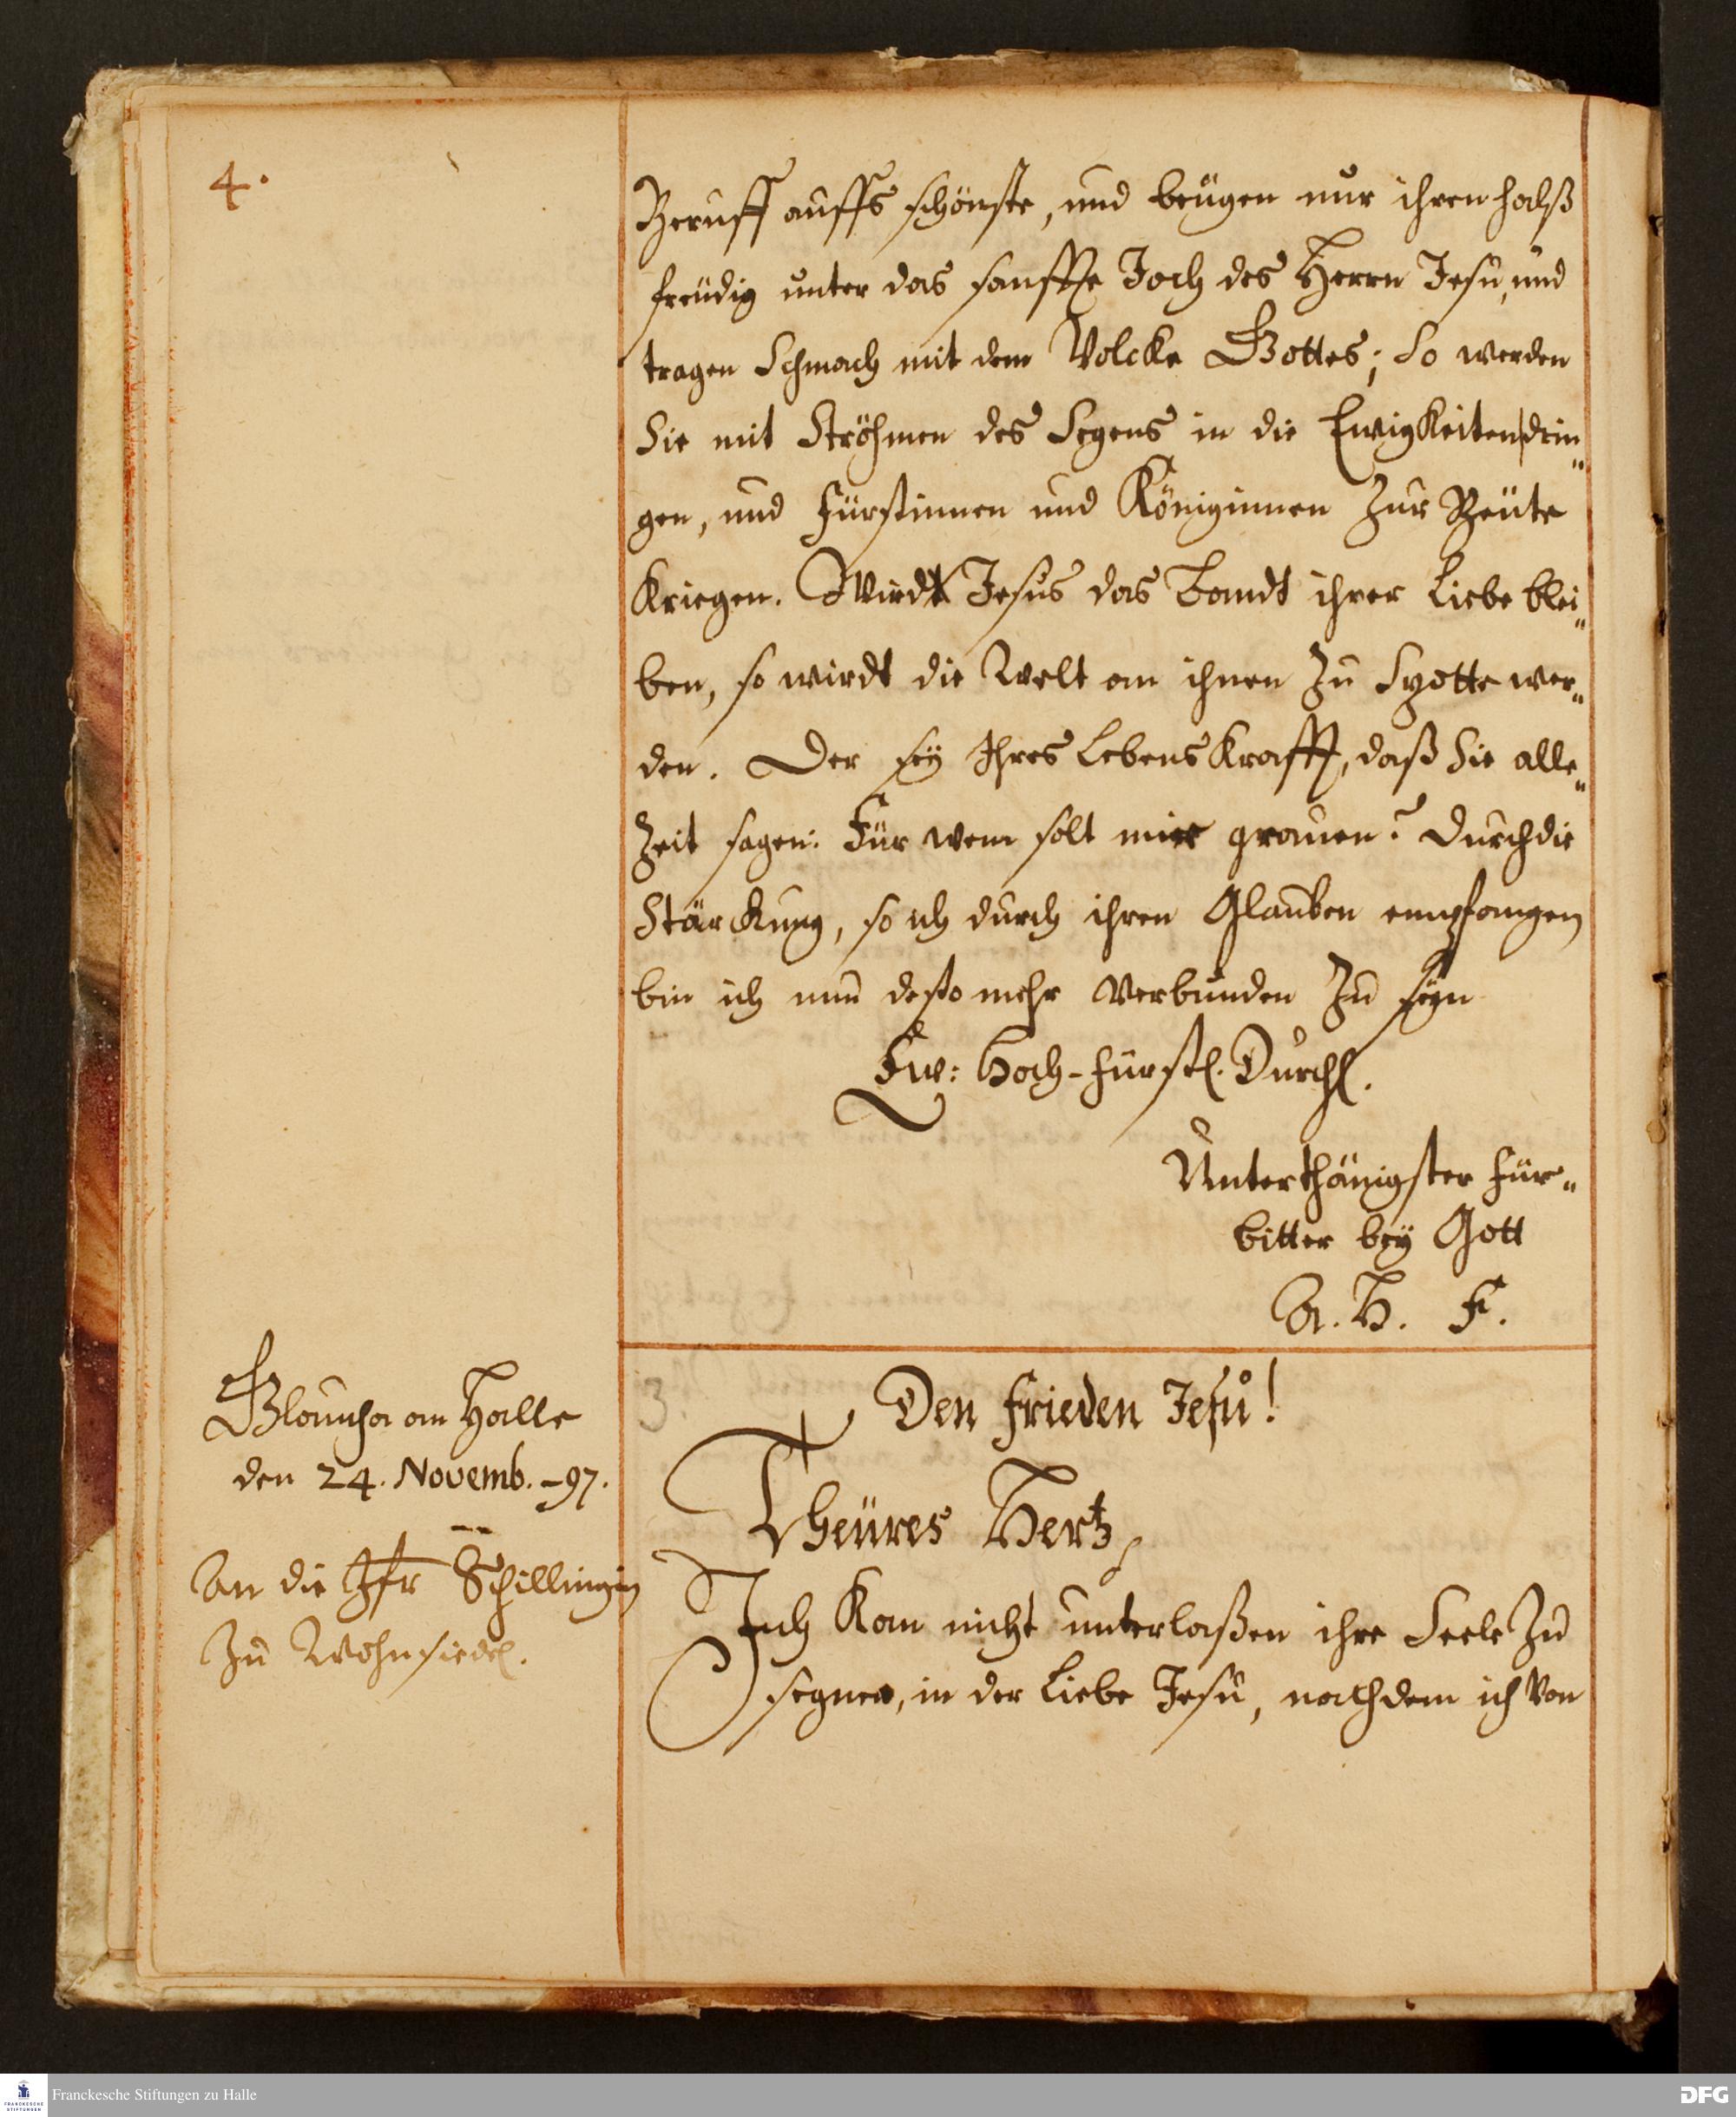 4.
Beruff auffs schönste, und beugen nur ihren halß
freudig unter das sanffte Joch des Herrn Jesu, und
tragen Schmach mit dem Volcke Gottes; So werden
Sie mit Ströhmen des Segens in die Ewigkeiten drin„
gen, und Fürstinnen und Königinnen zur Beute
kriegen. Wird Jesus das Bandt ihrer Liebe blei„
ben, so wirdt die Welt an ihnen zu Spotte wer„
den. Der sey Ihres Lebens Krafft, daß Sie alle„
zeit sagen: Für wem solt mir grauen? Durch die
Stärckung, so ich durch ihren Glauben empfangen
bin ich nun desto mehr verbunden zu seyn
Ew: Hoch-Fürstl. Durchl.
Unterthänigster Für„
bitter bey Gott
A. H. F.
Glaucha an Halle
den 24. Novemb. -97.
An die Jfr Schillingin
zu Wohnsiedel.
3.
Den Frieden Jesu!
Theures Hertz,
Ich kan nicht unterlaßen ihre Seele zu
segnen, in der Liebe Jesu, nachdem ich von
FRANCKESCHE
STIFTUNGEN
Franckesche Stiftungen zu Halle
DFG